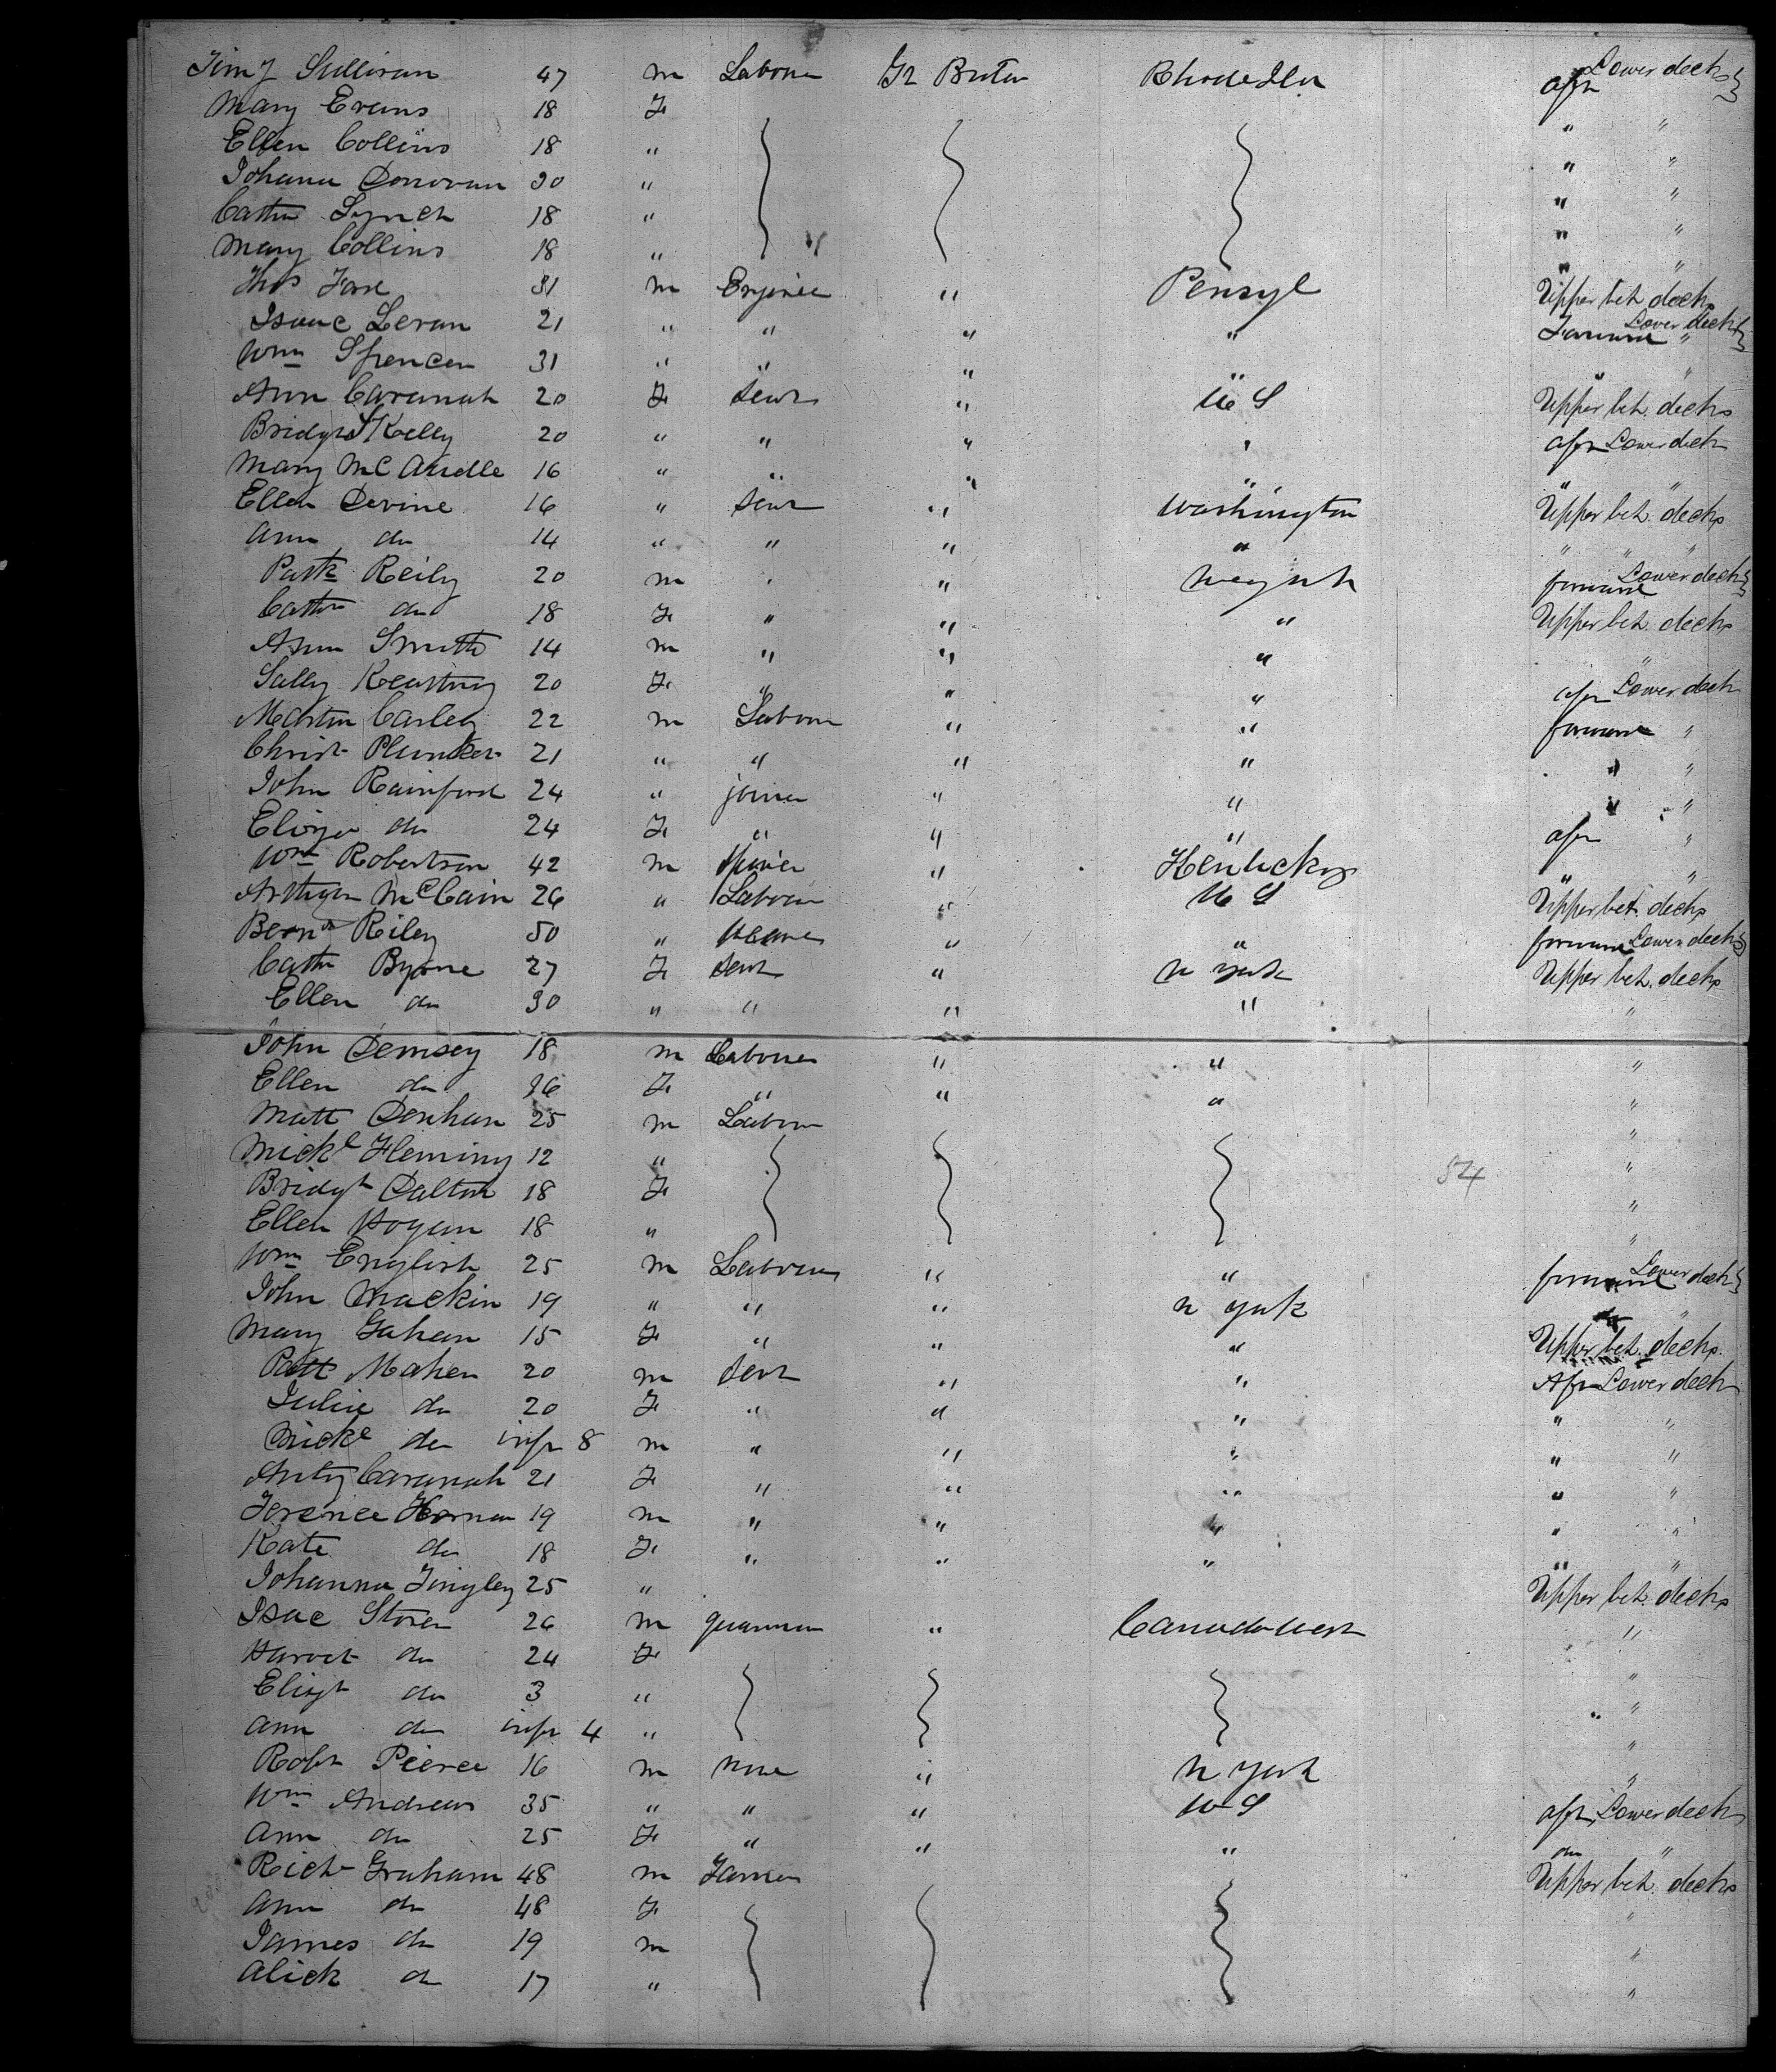 Timy Sullivan 47 m Laborer Gt Britn Rhode Iln aft Lower decks
Mary Evans 18 F " "
Ellen Collins 18 " " "
Johana Donovan 30 " " "
Cathn Lynch 18 " " "
Mary Collins 18 " " "
Thos 31 m Enginee " Pensyl Upper bet decks
Isaac Levan 21 " " " " Forward Lower deck
Wm Spencer 31 " " " " " "
Ann Cavanah 20 F Servt " U S Upper bet. decks
Bridgt Kelly 20 " " " " aft Lower deck
Mary McArdle 16 " " " " " "
Ellen Devine 16 " Servt " Washington Upper bet. decks
Ann do 14 " " " " " " "
Patk Reily 20 m " " New york forward Lower deck
Cathn do 18 F " " " Upper bet. decks
Ann Smith 14 m " " " "
Sally Keating 20 F " " " aft Lower deck
Martin Carley 22 m Laborer " " forward "
Christ Plunket 21 " " " " " "
John Rainford 24 " joiner " " " "
Eliza do 24 F " " " aft "
Wm Robertson 42 m " Kentucky " "
Arthur McCain 26 " Laborer " U S Upper bet. decks
Bernd Riley 50 " " " forward Lower deck
Cathn Byrne 27 F Servt " n york Upper bet. decks
Ellen do 30 " " " " "
John Demsey 18 m Laborer " " "
Ellen do 36 F " " " "
Matt Denham 25 m Laborer "
Mickl Fleming 12 " "
Bridgt Dalton 18 F "
54
Ellen Hogan 18 " "
Wm English 25 m Laborer " " forward Lower deck
John Mackin 19 " " " n york "
Mary Gahan 15 F " " " Upper bet. decks
Patt Maher 20 m Servt " " Aft Lower deck
Julia do 20 F " " " " "
Mickl do inft 8 m " " " " "
Anty Cavanah 21 F " " " " "
Terence 19 m " " " " "
Kate do 18 F " " " " "
Johanna Tingley 25 " Upper bet. decks
Isac Stoner 26 m " Canada West "
Harriet do 24 F "
Elizt do 3 " "
Ann do inft 4 " "
Robt Pierce 16 m none " n york "
Wm Andrews 35 " " " U S aft Lower deck
Ann do 25 F " " " do "
Richd Graham 48 m Farmer Upper bet. decks
Ann do 48 F "
James do 19 m "
Alick do 17 " "